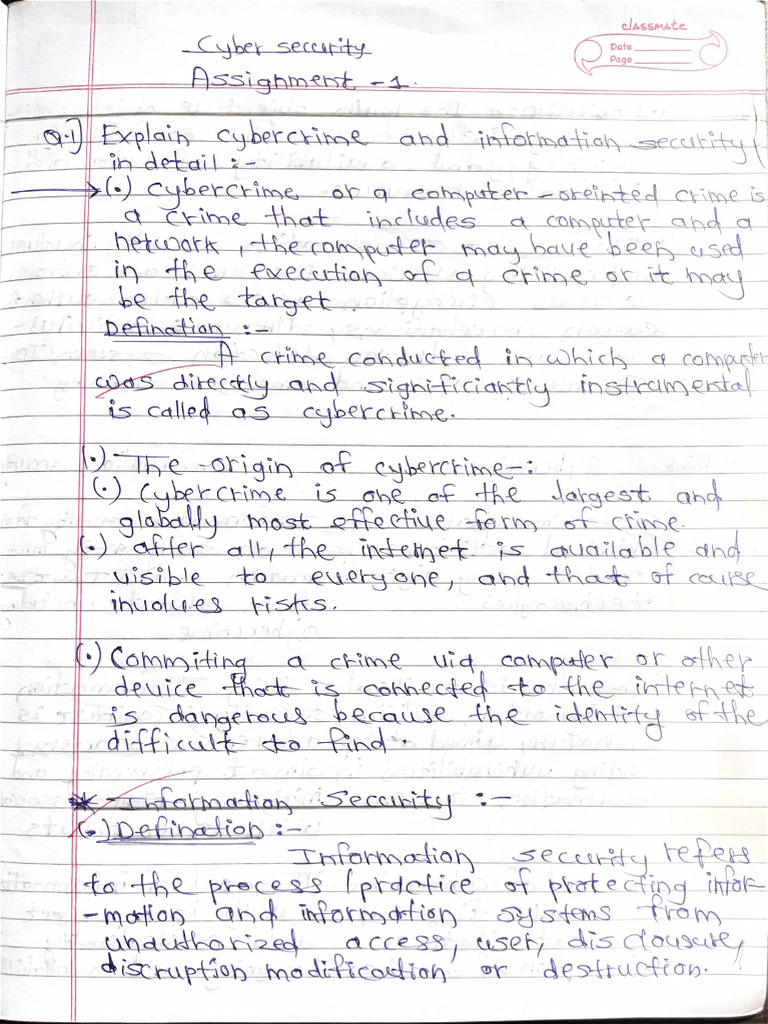 classmate
Date
Page
Cyber security
Assignment - 1.
Q.1] Explain cybercrime and information security
in detail :-
(•) Cybercrime or a computer - oreinted crime is
a crime that includes a computer and a
network, the computer may have been used
in the execution of a crime or it may
be the target.
Defination :-
A crime conducted in which a computer
was directly and significiantly instrumental
is called as cybercrime.
(•) The origin of cybercrime -:
(•) Cybercrime is one of the largest and
globally most effective form of crime.
(•) after all, the internet is available and
visible to everyone, and that of course
involves risks.
(•) Commiting a crime via computer or other
device that is connected to the internet
is dangerous because the identity of the
difficult to find.
* Information Security :-
(•) Defination :-
Information security refess
to the process / practice of protecting infor-
-mation and information systems from
unauthorized access, user, disclousure,
discruption modification or destruction.